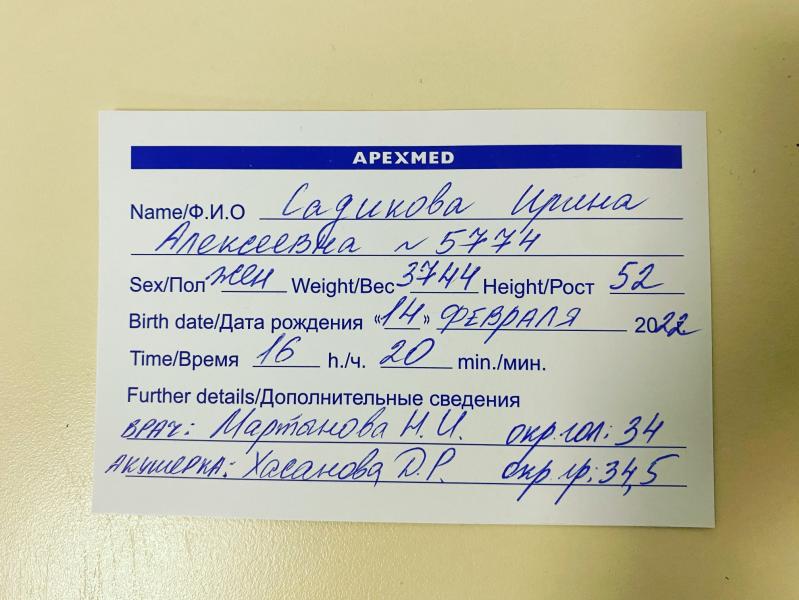 APEXMED
Name/Ф.И.О Садикова Ирина
Алексеевна ~ 5774
Sex/Пол жен Weight/Вес 3744 Height/Рост 52
Birth date/Дата рождения «14» февраля 2022
Time/Время 16 h./ч. 20 min./мин.
Further details/Дополнительные сведения
врач: Мартынова Н.И. окр.гол: 34
акушерка: Хасанова Д.Р. окр.гр: 34,5